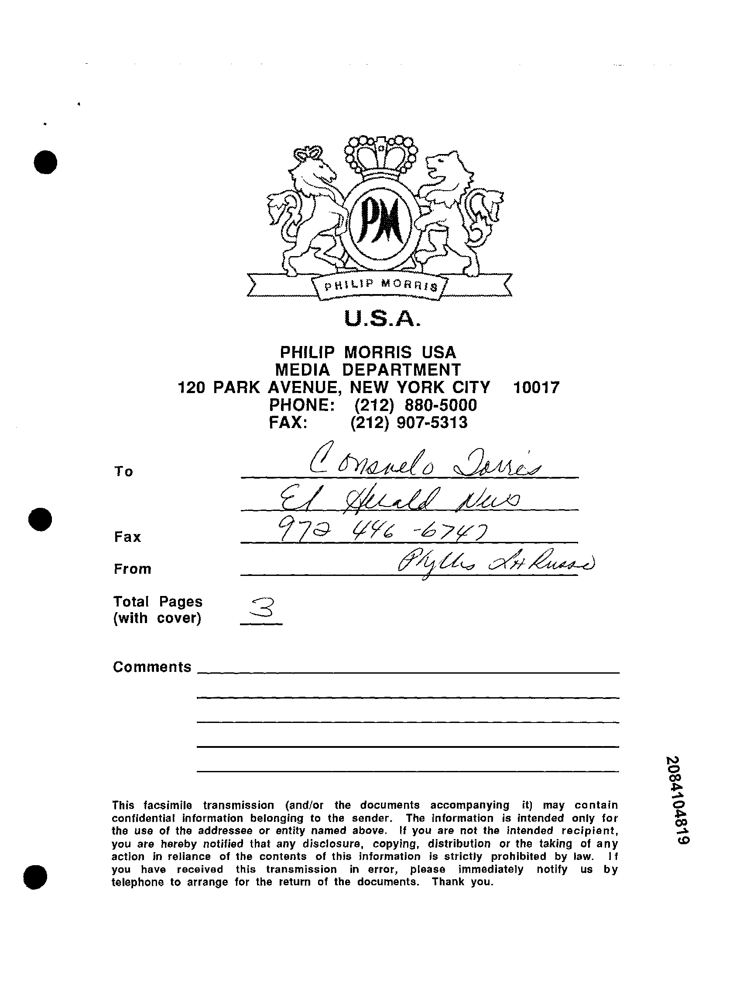 PM
PHILIP MORRIS
U.S.A.
PHILIP MORRIS USA
MEDIA DEPARTMENT
120 PARK AVENUE, NEW YORK CITY 10017
PHONE: (212) 880-5000
FAX: (212) 907-5313
To Consuelo Torres
El Herald News
Fax 972 446-6747
From Phyllis LaRusso
Total Pages 3
(with cover)
Comments
This facsimile transmission (and/or the documents accompanying it) may contain
confidential information belonging to the sender. The information is intended only for
the use of the addressee or entity named above. If you are not the intended recipient,
you are hereby notified that any disclosure, copying, distribution or the taking of any
action in reliance of the contents of this information is strictly prohibited by law. If
you have received this transmission in error, please immediately notify us by
telephone to arrange for the return of the documents. Thank you.
2084104819